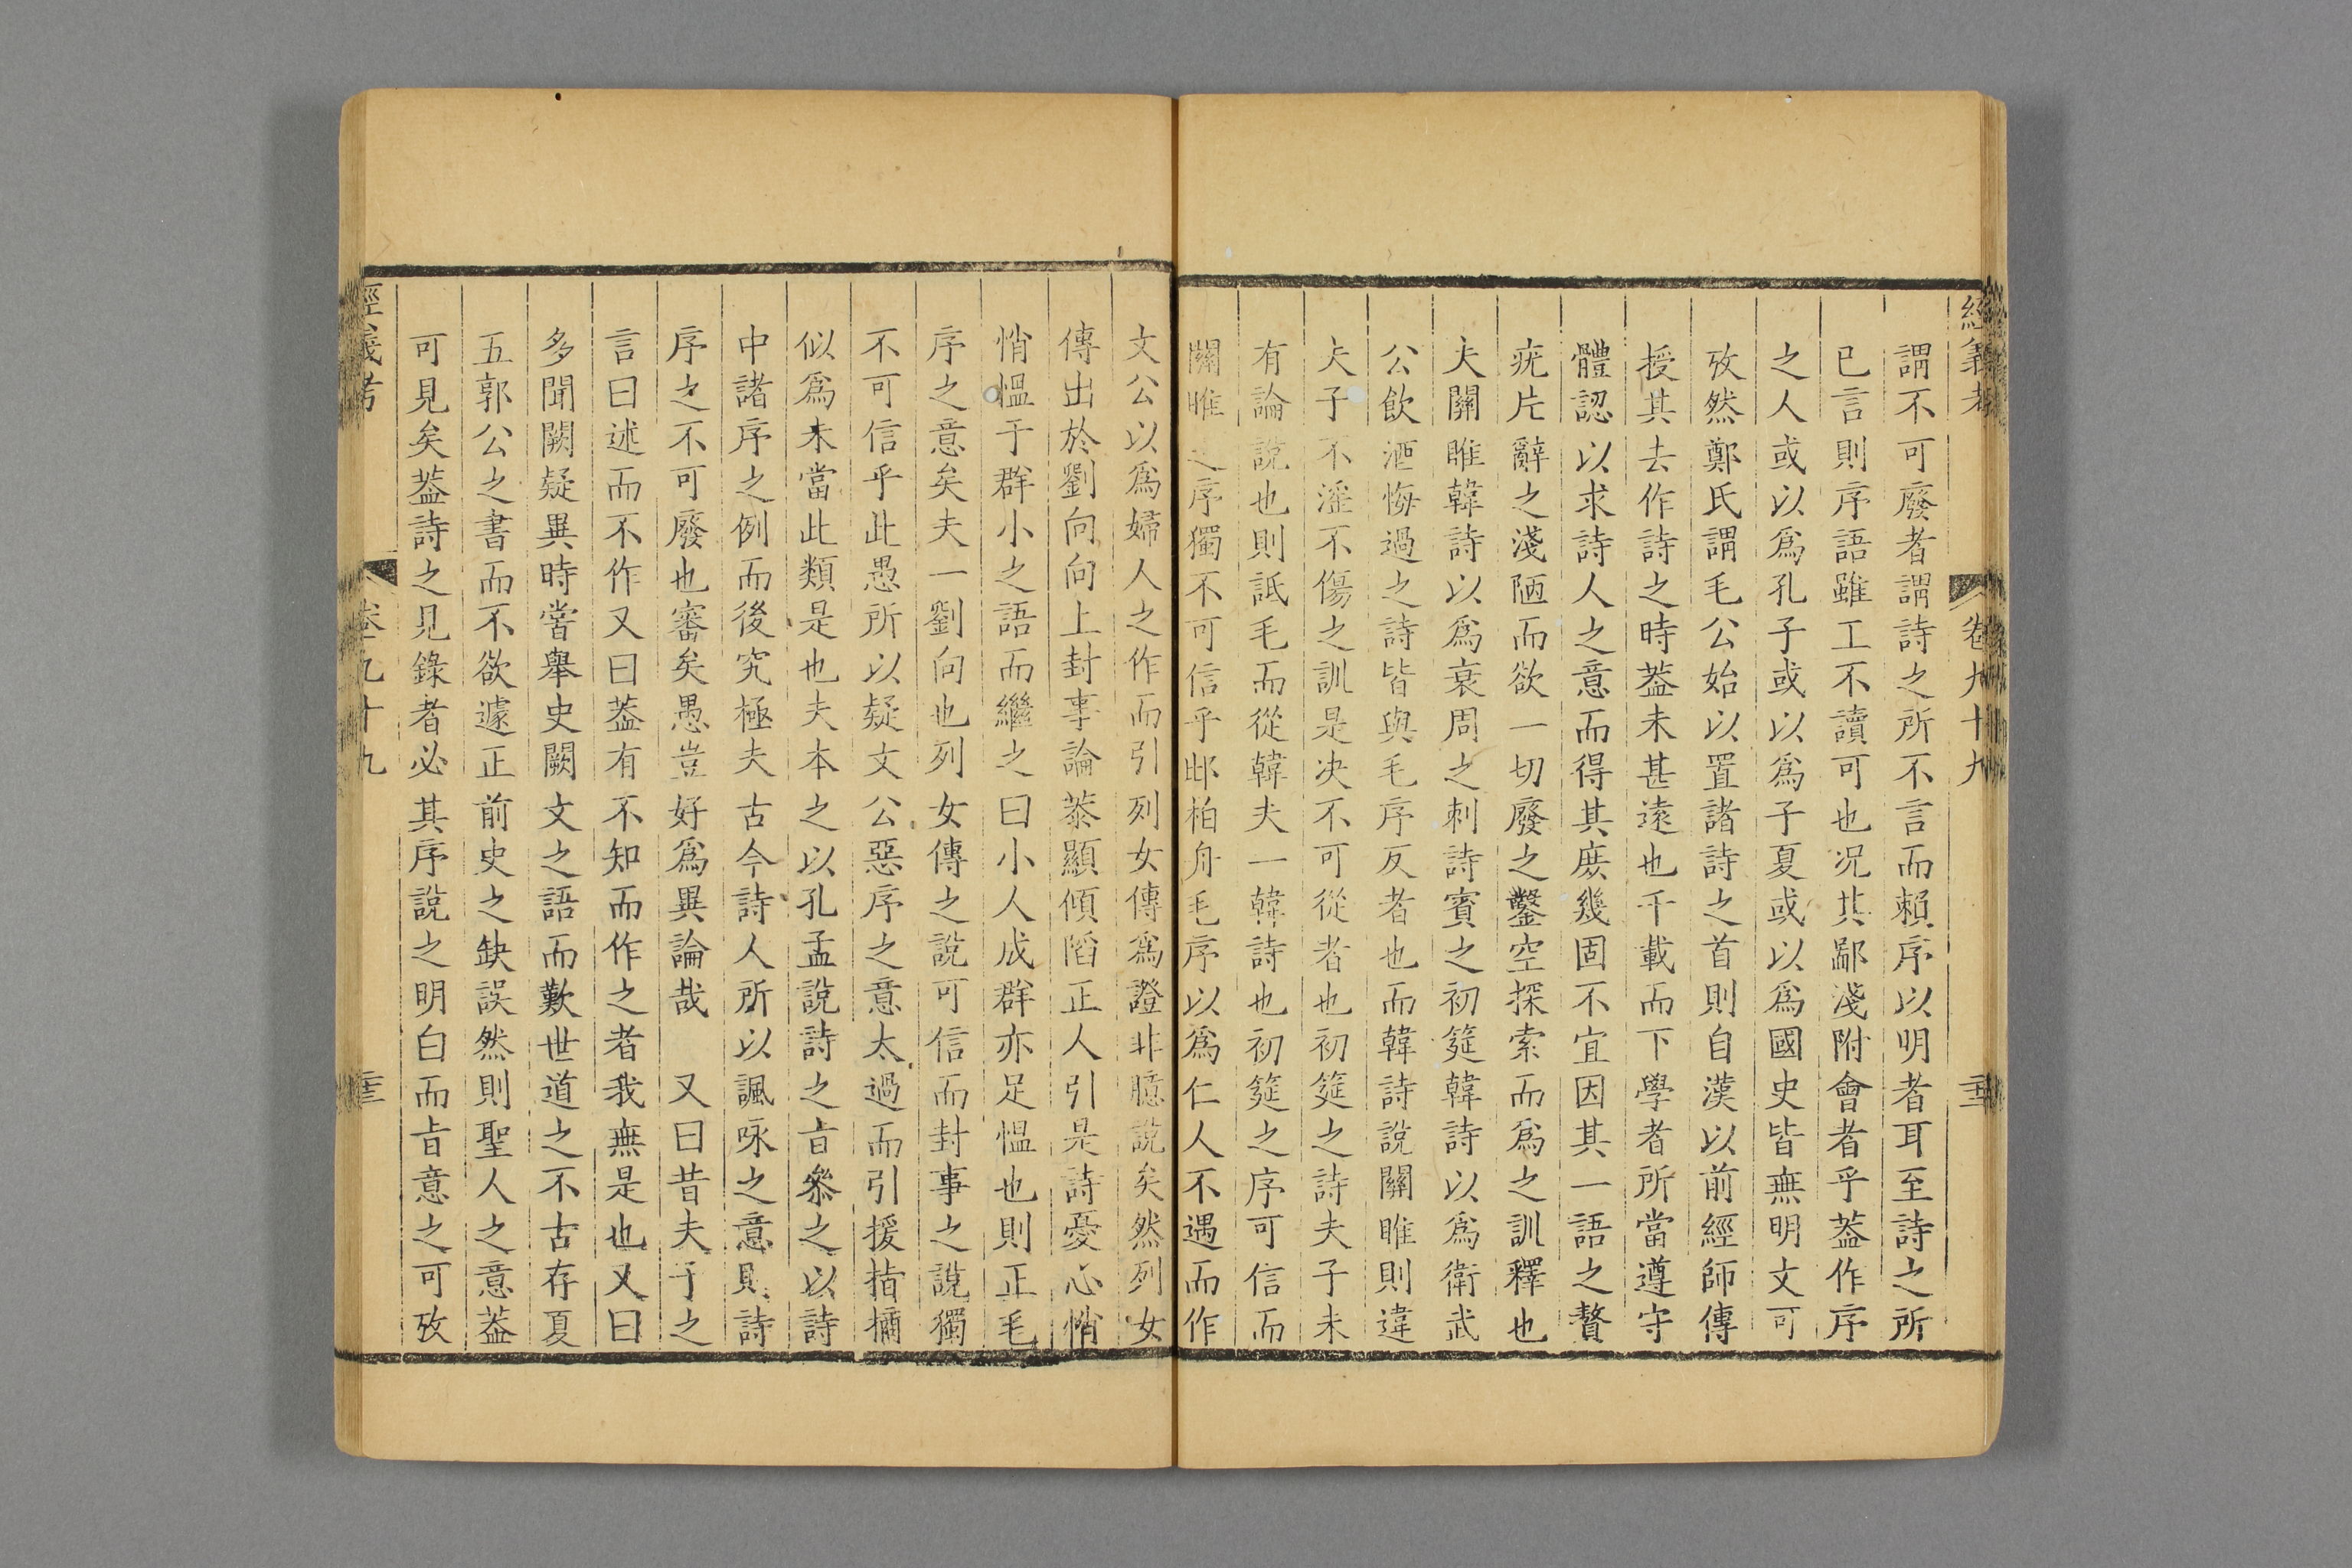 經義考 卷九十九
謂不可廢者謂詩之所不言而賴序以明者耳至詩之所
已言則序語雖工不讀可也况其鄙淺附會者乎葢作序
之人或以爲孔子或以爲子夏或以爲國史皆無明文可
攷然鄭氏謂毛公始以置諸詩之首則自漢以前經師傳
授其去作詩之時葢未甚遠也千載而下學者所當遵守
體認以求詩人之意而得其庶幾固不宜因其一語之贅
疣片辭之淺陋而欲一切廢之鑿空探索而爲之訓釋也
夫關雎韓詩以爲衰周之刺詩賓之初筵韓詩以爲衛武
公飲酒悔過之詩皆與毛序反者也而韓詩說關雎則違
夫子不淫不傷之訓是决不可從者也初筵之詩夫子未
有論說也則詆毛而從韓夫一韓詩也初筵之序可信而
關雎之序獨不可信乎邶柏舟毛序以爲仁人不遇而作
文公以爲婦人之作而引列女傳爲證非臆說矣然列女
傳出於劉向向上封事論恭顯傾陷正人引是詩憂心悄
悄愠于群小之語而繼之曰小人成群亦足愠也則正毛
序之意矣夫一劉向也列女傳之說可信而封事之說獨
不可信乎此愚所以疑文公惡序之意太過而引援指摘
似爲未當此類是也夫本之以孔孟說詩之旨參之以詩
中諸序之例而後究極夫古今詩人所以諷咏之意則詩
序之不可廢也審矣愚豈好爲異論哉 又曰昔夫子之
言曰述而不作又曰葢有不知而作之者我無是也又曰
多聞闕疑異時嘗舉史闕文之語而歎世道之不古存夏
五郭公之書而不欲遽正前史之缺誤然則聖人之意葢
可見矣葢詩之見錄者必其序說之明白而旨意之可攷
經義考 卷九十九